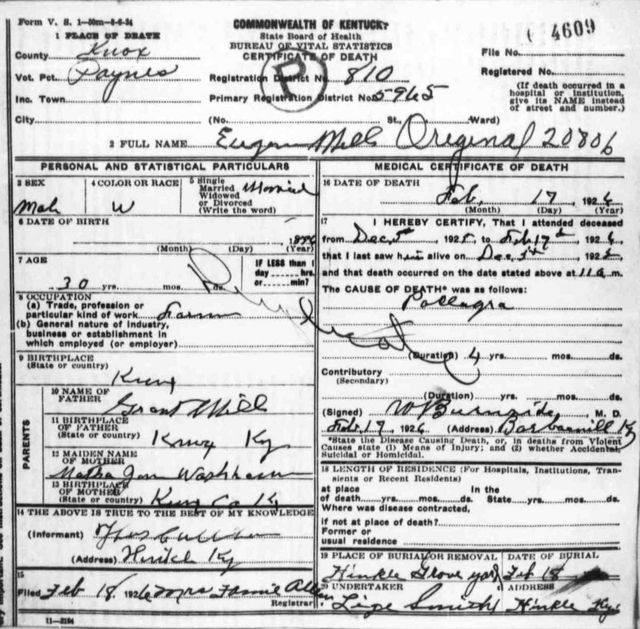 Form V. S. 1—50m—8-6-24
COMMONWEALTH OF KENTUCKY
State Board of Health
BUREAU OF VITAL STATISTICS
CERTIFICATE OF DEATH
4609
1 PLACE OF DEATH
County Knox
Vot. Pct. Paynes
Inc. Town
City
R
Registration District No. 810
Primary Registration District No. 5965
(No. St., Ward)
File No.
Registered No.
(If death occurred in a
hospital or institution,
give its NAME instead
of street and number.)
2 FULL NAME Eugene Mills Original 20806
PERSONAL AND STATISTICAL PARTICULARS
3 SEX
Male
4 COLOR OR RACE
W
5 Single
Married
Widowed
or Divorced
(Write the word)
Married
6 DATE OF BIRTH
(Month) (Day) (Year)
7 AGE
30 yrs. mos. ds.
IF LESS than 1
day hrs.
or min.?
8 OCCUPATION
(a) Trade, profession or
particular kind of work Farm
(b) General nature of Industry,
business or establishment in
which employed (or employer)
Duplicate
9 BIRTHPLACE
(State or country)
Knox
PARENTS
10 NAME OF
FATHER
Grant Mills
11 BIRTHPLACE
OF FATHER
(State or country)
Knox Ky
12 MAIDEN NAME
OF MOTHER
13 BIRTHPLACE
OF MOTHER
(State or country) Knox Co Ky
14 THE ABOVE IS TRUE TO THE BEST OF MY KNOWLEDGE
(Informant)
(Address) Hinkle Ky
15
Filed Feb 18, 1926 Mrs Fannie
Registrar
11—3184
MEDICAL CERTIFICATE OF DEATH
16 DATE OF DEATH
Feb. 17, 1926
(Month) (Day) (Year)
17 I HEREBY CERTIFY, That I attended deceased
from Dec 5th 1925 to Feb 17th 1926
that I last saw him alive on Dec 5th 1925
and that death occurred on the date stated above at 11 a m.
The CAUSE OF DEATH* was as follows:
Pollagra
(Duration) 4 yrs. mos. ds.
Contributory
(Secondary)
(Duration) yrs. mos. ds.
(Signed) W Burnside M. D.
Feb 19, 1926 (Address) Barbourville Ky
*State the Disease Causing Death, or, in deaths from Violent
Causes state (1) Means of Injury; and (2) whether Accidental,
Suicidal or Homicidal.
18 LENGTH OF RESIDENCE (For Hospitals, Institutions, Tran-
sients or Recent Residents)
At place In the
of death yrs. mos. ds. State yrs. mos. ds.
Where was disease contracted,
if not at place of death?
Former or
usual residence
19 PLACE OF BURIAL OR REMOVAL DATE OF BURIAL
Hinkle Grove yard Feb 18
20 UNDERTAKER ADDRESS
Lige Smith Hinkle Ky